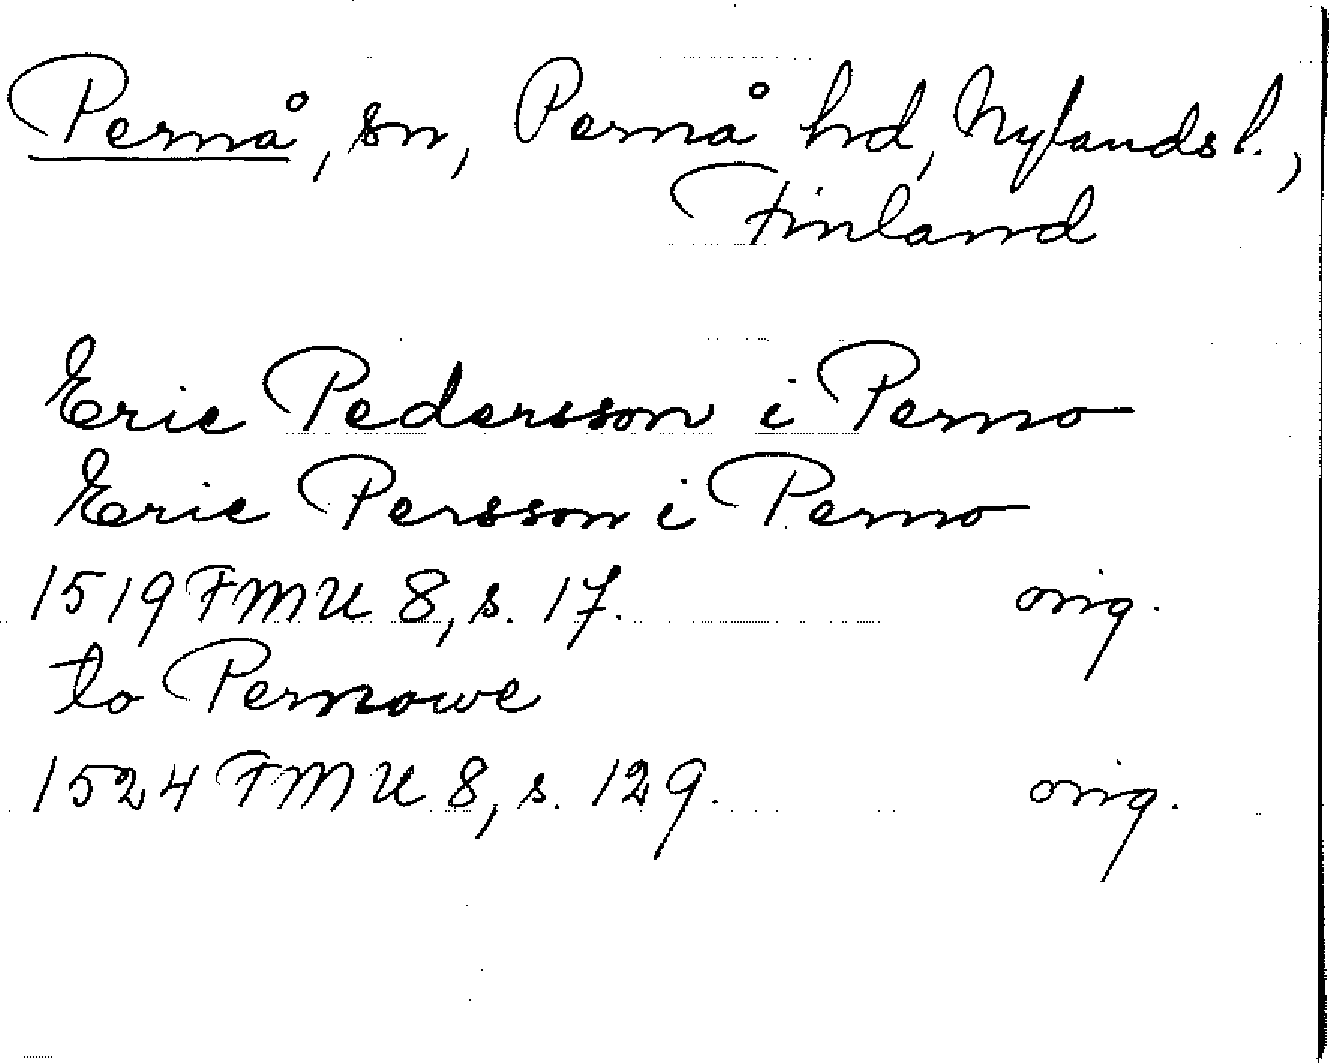 Pernå, sn, Pernå hd, Nylands l.,
Finland
Eric Pedersson i Perno
Eric Persson i Perno
1519 FMU 8, s. 17. orig.
to Pernowe
1524 FMU 8, s. 129. orig.